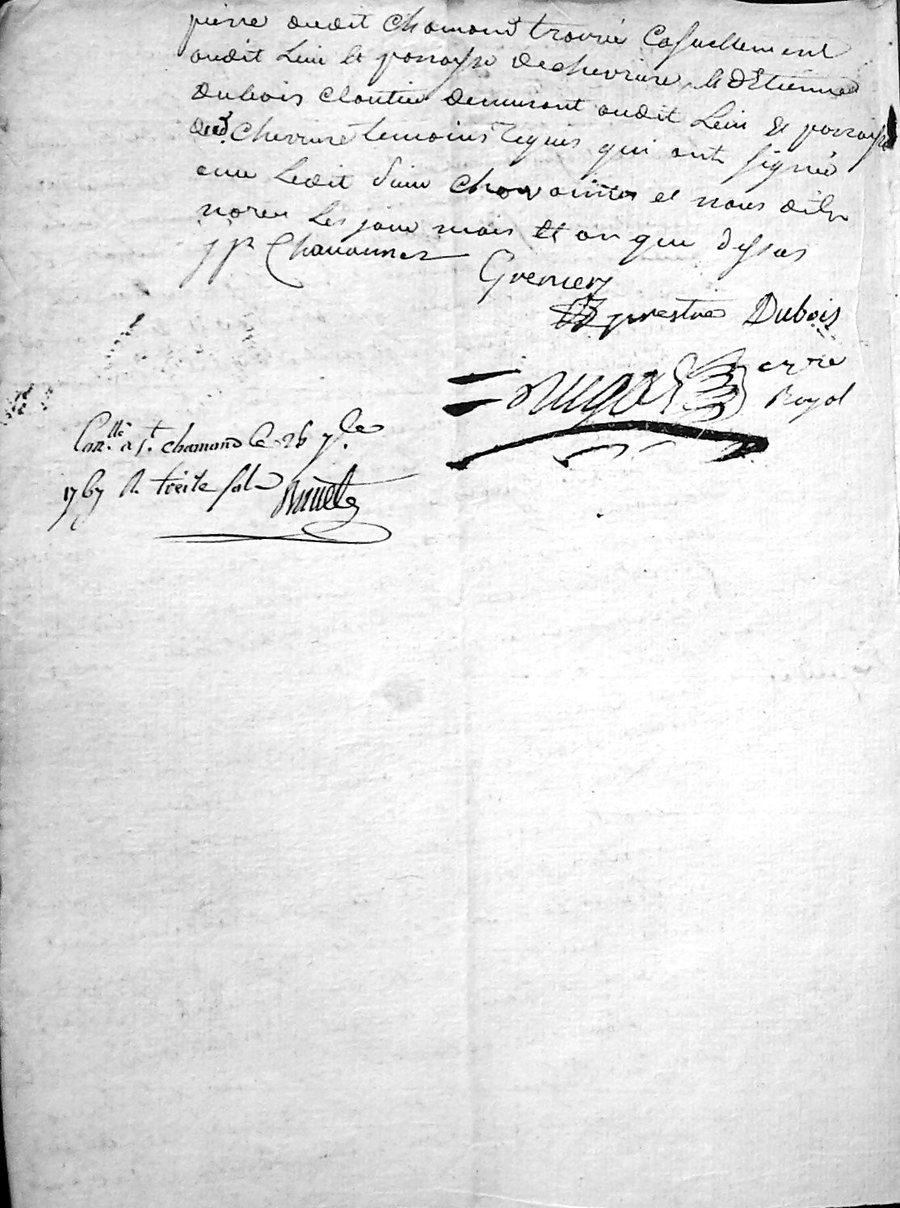 pierre audit chamond trouvé casuellement
audit Lieu et parroisse de chevrière & d'Etienne
dubois cloutier demeurant audit Lieu et parroisse
dud. chevriere temoins requis qui ont signé
avec Ledit sieur et nous dit
Les jour mois et an que dessus
JP Chavannes
Grenier
prestre Dubois
Royal
Con.lle a S.t chamond le 26 7.bre
1767 R. treize sols